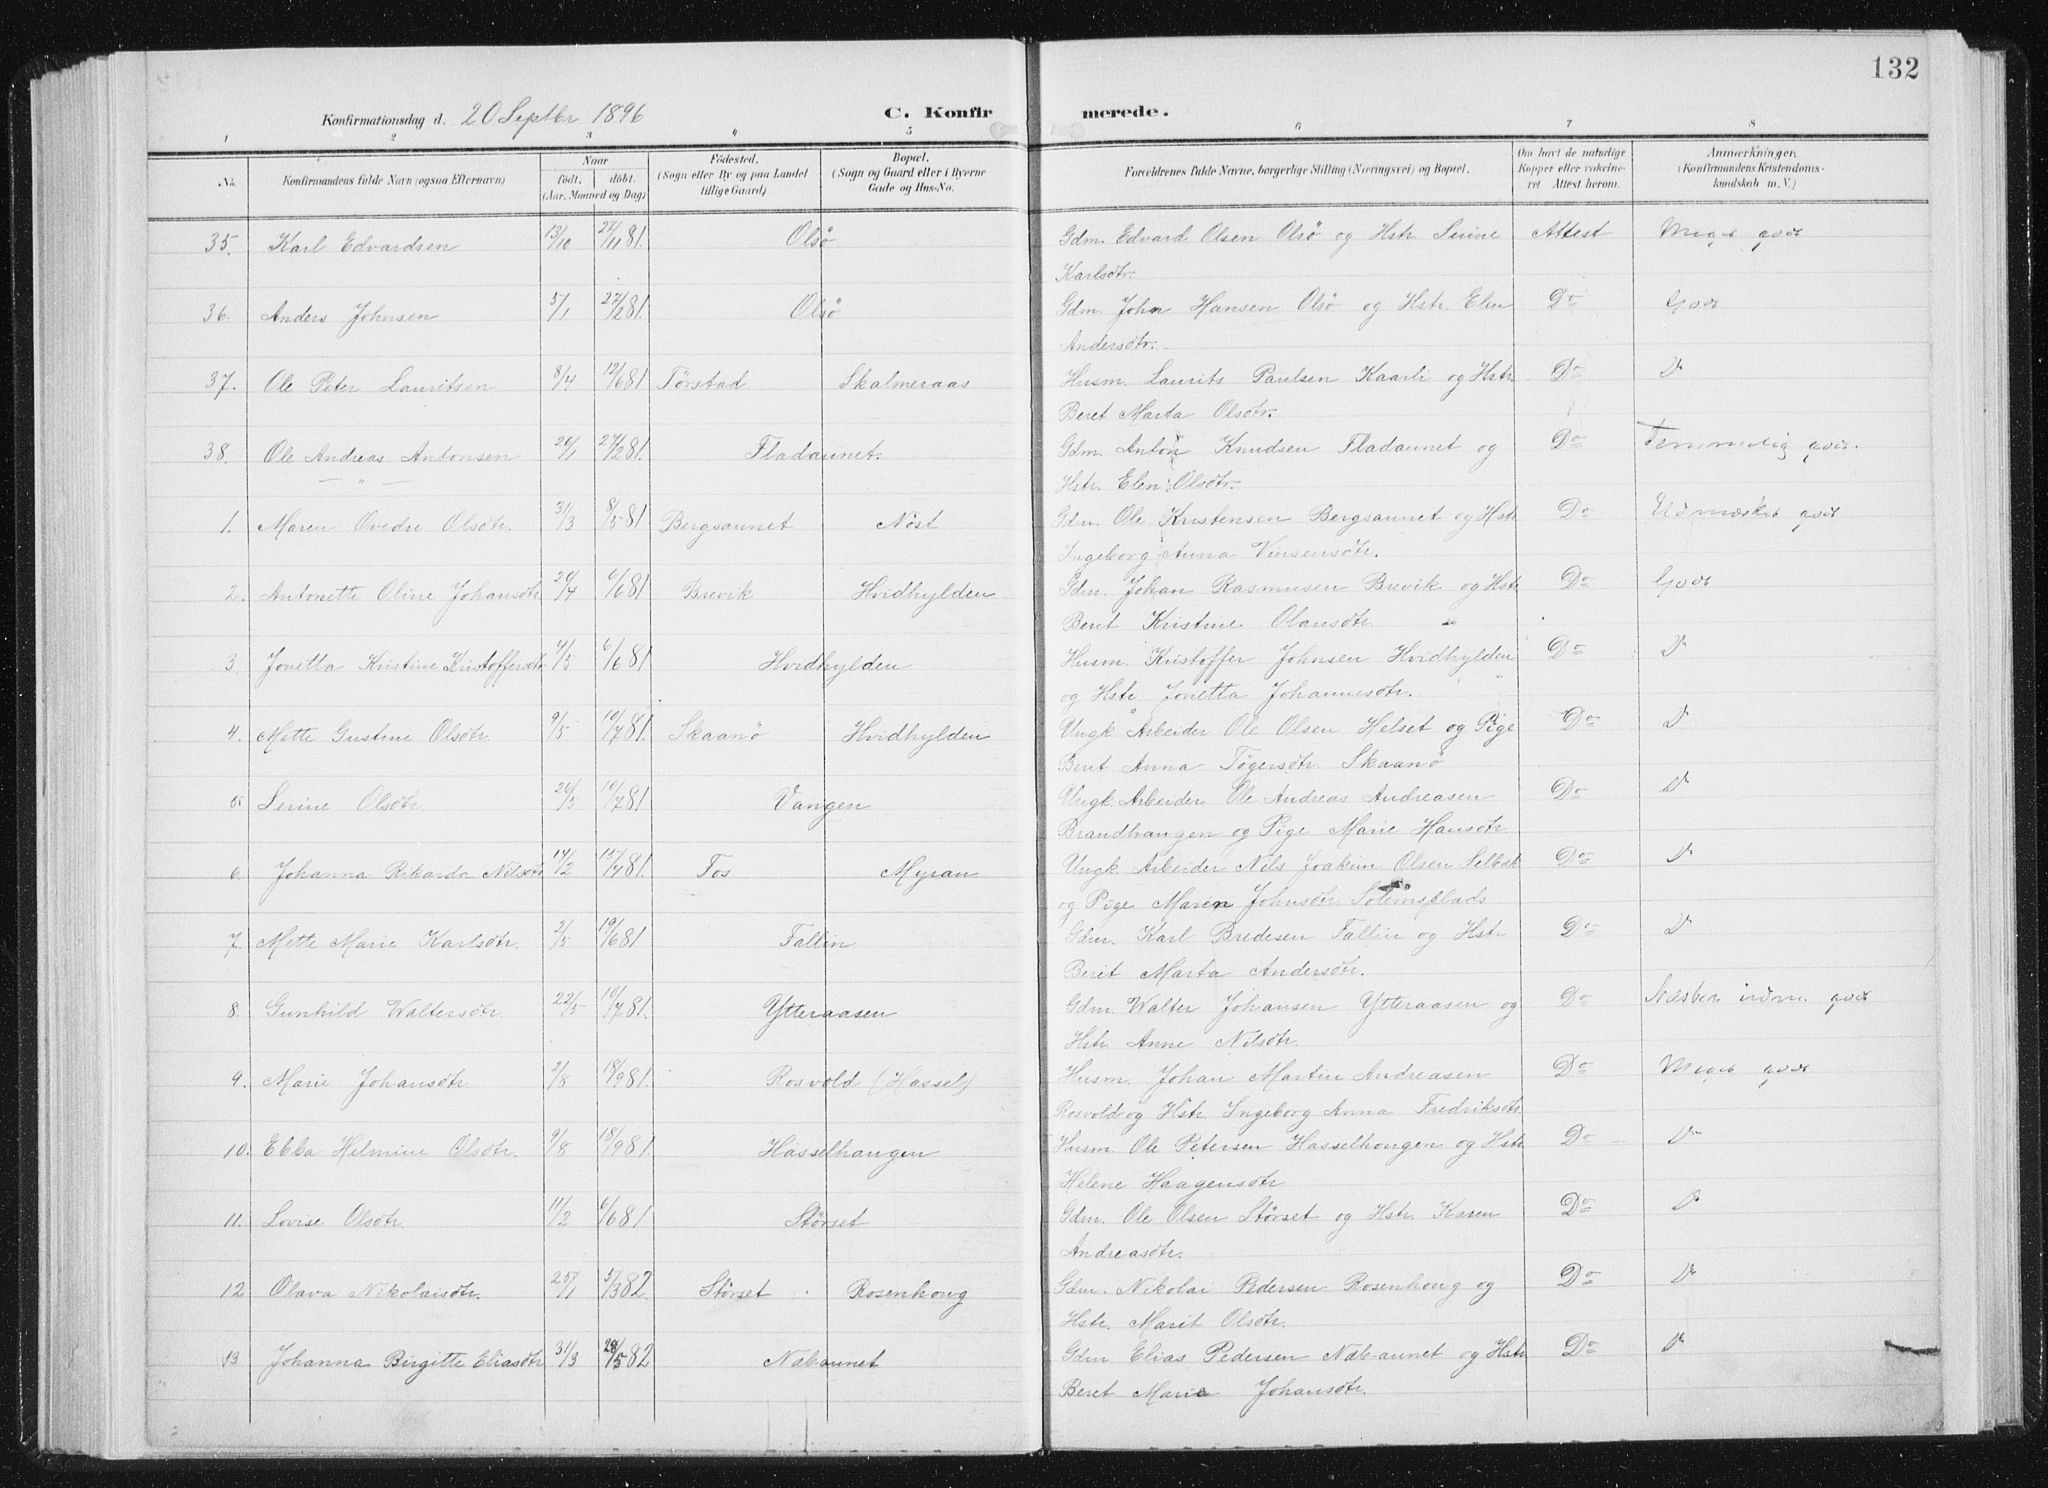 132
Konfirmationsdag d. 20 Septbr 1896 C. Konfirmerede.
1 2 3 4 5 6 7 8
No. Konfirmandens fulde Navn (ogsaa Efternavn) Naar födt. döbt. (Aar, Maaned og Dag) Födested. (Sogn eller By og paa Landet tillige Gaard) Bopæl. (Sogn og Gaard eller i Byerne Gade og Hus-No. Forældrenes fulde Navne, borgerlige Stilling (Næringsvei) og Bopæl. Om havt de naturlige Kopper eller vakcineret Attest herom. Anmærkninger. (Konfirmandens Kristendomskundskab m. V.)
35. Karl Edvardsen 13/10 27/11 81. Olsö Gdm. Edvard Olsen Olsö og Hstr Serine Attest Meget god
Karlsdtr.
36. Anders Johnsen 5/1 27/2 81. Olsö Gdm. John Hansen Olsö og Hstr. Elen Do God
Andersdtr.
37. Ole Peter Lauritsen 8/4 12/6 81 Törstad Skalmeraas Husm. Laurits Paulsen Kaarli og Hstr Do Do
Beret Marta Olsdtr.
38. Ole Andreas Antonsen 20/1 27/2 81. Fladaunet. Gdm. Anton Knudsen Fladaunet og Do Temmelig god.
— " — Hstr. Elen Olsdtr.
1. Maren Ovedre Olsdtr. 31/3 8/5 81 Bergsaunet Nöst Gdm. Ole Kristensen Bergsaunet og Hstr Do Udmærket god
Ingeborg Anna Vinsensdtr.
2. Antonette Oline Johansdtr 20/4 6/6 81. Brevik Hvidhylden Gdm. Johan Rasmusen Brevik og Hstr Do God
Beret Kristine Olausdtr.
3. Jonetta Kristine Kristoffersdtr 4/5 6/6 81 Hvidhylden Husm. Kristoffer Johnsen Hvidhylden Do Do
og Hstr Jonetta Johannesdtr.
4. Mette Gustine Olsdtr. 9/5 10/7 81. Skaanö Hvidhylden Ungk Arbeider Ole Olsen Helset og Pige Do Do
Beret Anna Tögersdtr. Skaanö
5 Serine Olsdtr. 20/5 10/7 81 Vangen Ungk. Arbeider Ole Andreas Andreasen Do Do
Brandhaugen og Pige Marie Hansdtr.
6. Johanna Rikarda Nilsdtr 14/2 15/4 81. Fos Myran Ungk Arbeider Nils Joakim Olsen Selbæk Do Do
og Pige Maren Johnsdtr Solemsplads
7. Mette Marie Karlsdtr. 2/5 19/6 81 Fallin Gdm. Karl Bredesen Fallin og Hstr Do Do
Berit Marta Andersdtr.
8. Gunhild Waltersdtr. 22/5 10/7 81. Ytteraasen Gdm. Walter Johansen Ytteraasen og Do Næsten udm. god
Hstr. Anne Nilsdtr.
9. Marie Johansdtr. 2/8 18/9 81. Rosvold (Hassel) Husm. Johan Martin Andreasen Do Meget god
Rosvold og Hstr. Ingeborg Anna Fredriksdtr.
10. Ebba Helmine Olsdtr. 9/8 18/9 81. Hasselhaugen Husm. Ole Petersen Hasselhougen og Hstr Do Do
Helene Haagensdtr
11. Lovise Olsdtr. 11/2 6/6 81 Störset Gdm. Ole Olsen Störset og Hstr. Karen Do Do
Andreasdtr.
12 Olava Nikolaisdtr. 25/1 5/3 82. Störset Rosenhoug Gdm. Nikolai Pedersen Rosenhoug og Do Do
Hstr. Marit Olsdtr.
13 Johanna Birgitte Eliasdtr 31/3 28/5 82 Næb-aunet Gdm Elias Pedersen Næb-aunet og Hstr Do Do
Beret Marie Johansdtr.